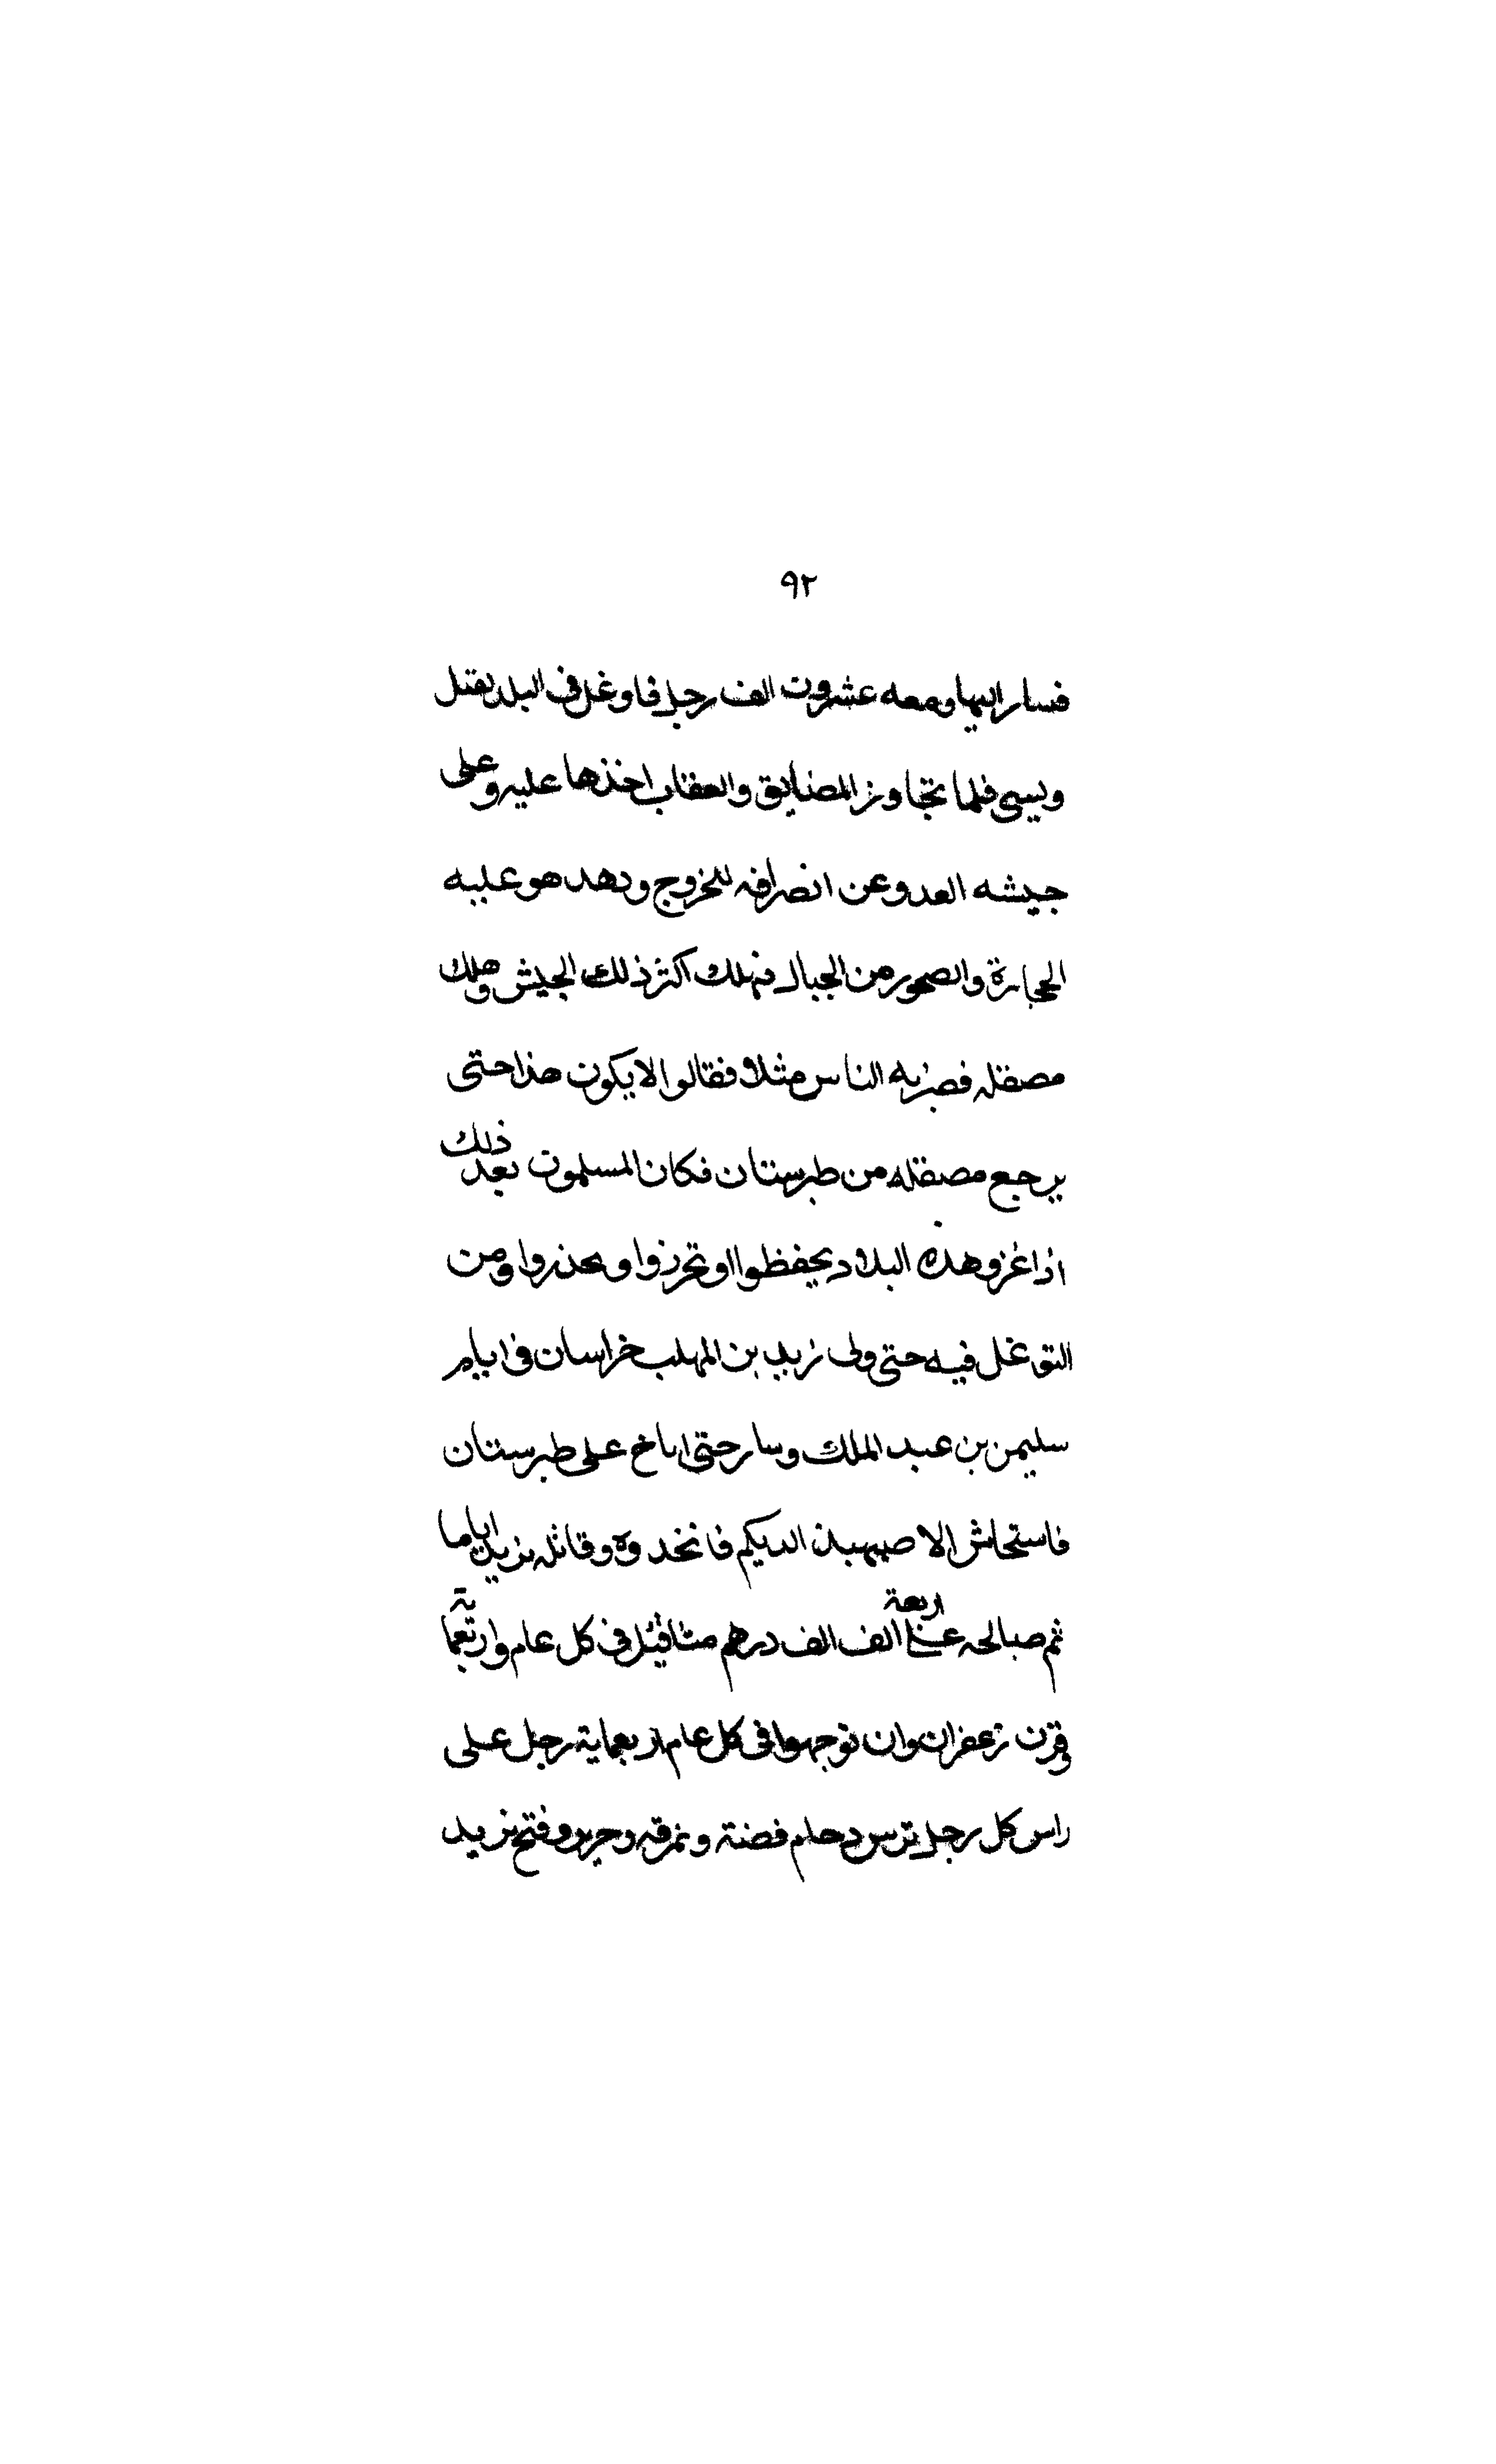 ٩٢
فسار اليها ومعه عشرون الف رجل فاوغل في البلد يقتل
ويسبى فلما تجاوز المضايق والعقاب اخذها عليه وعلى
جيشه العدو عن انصرافه للخروج ودهدهو عليه
الحجارة والصخور من الجبال فهلك اكثر ذلك الجيش وهلك
مصقله فضرب به الناس مثلا فقالوا لا يكون هذا حتى
يرجع مصقله من طبرستان فكان المسلمون بعد ذلك
اذا غزو هذه البلاد يحفظوا وتحرزوا وحذروا ومن
التوغل فيه حتى ولى يزيد بن المهلب خراسان في ايام
سليمن بن عبد الملك وسار حتى اناخ على طبرستان
فاستجاش الاصبهبذ الديلم فانجدوه وقاتله يزيد اياما
ثم صالحه على اربعة الف الف درهم مثاقيل في كل عام واربعماية
وقرن زعفران وان توجهوا في كل عام اربعماية رجل على
راس كل رجل ترس وجام فضة ونمرقه وحرير وفتح يزيد